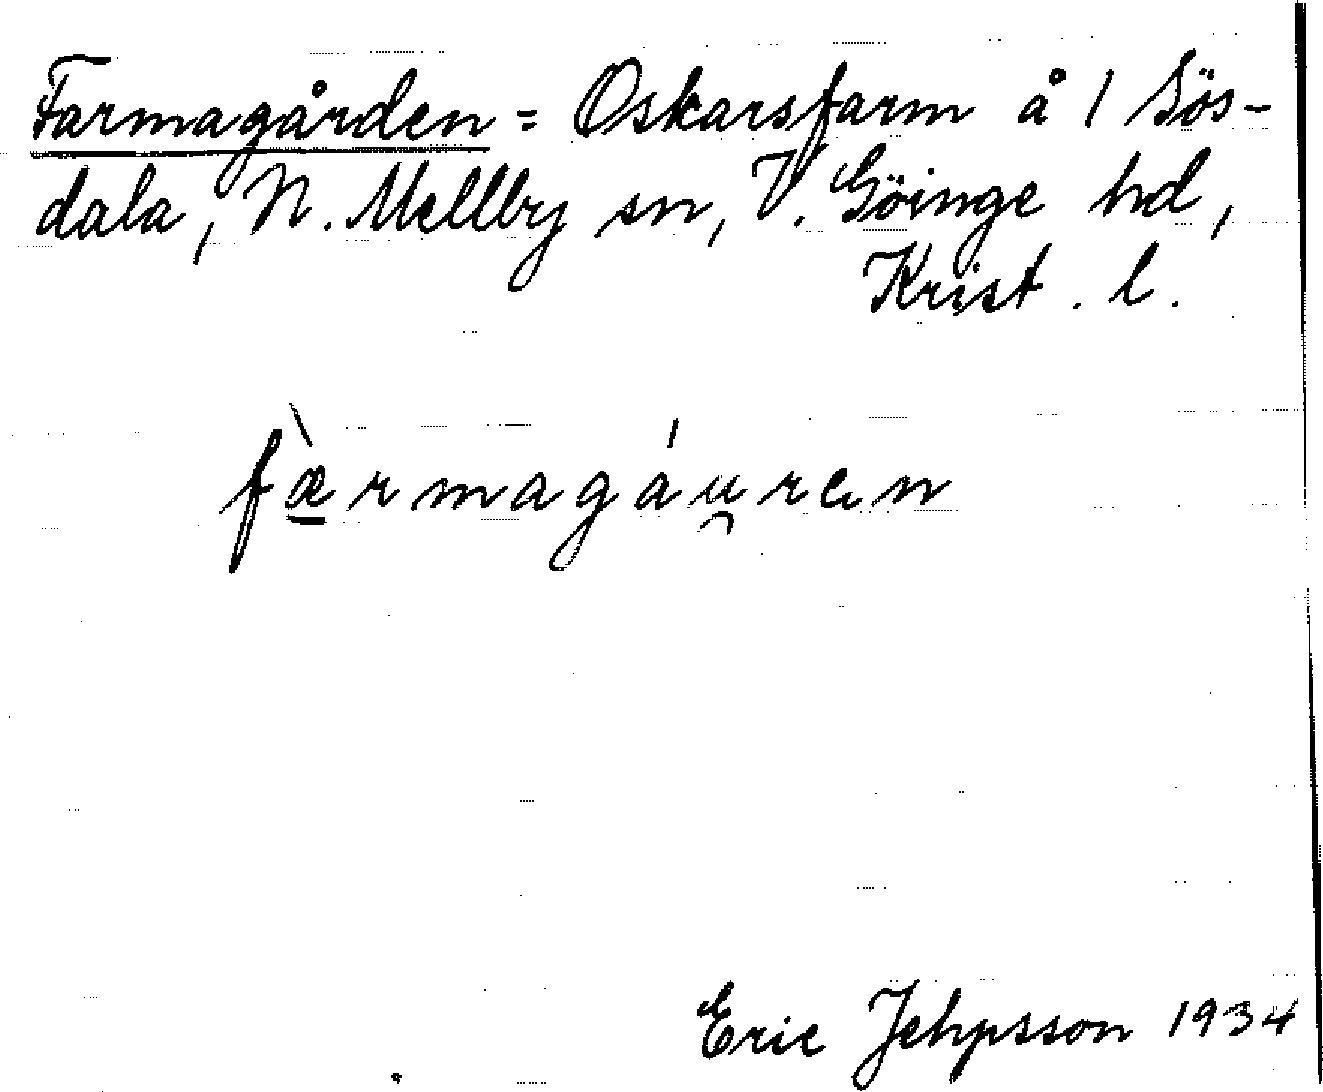 Farmagården = Oskarsfarm å 1 Sös-
dala, N. Mellby sn, V. Göinge hd,
Krist. l.
fæ̱̀rmagáu̯rɛn
Eric Jehpsson 1934